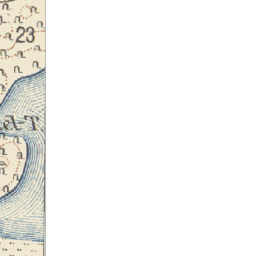 23
el-T.